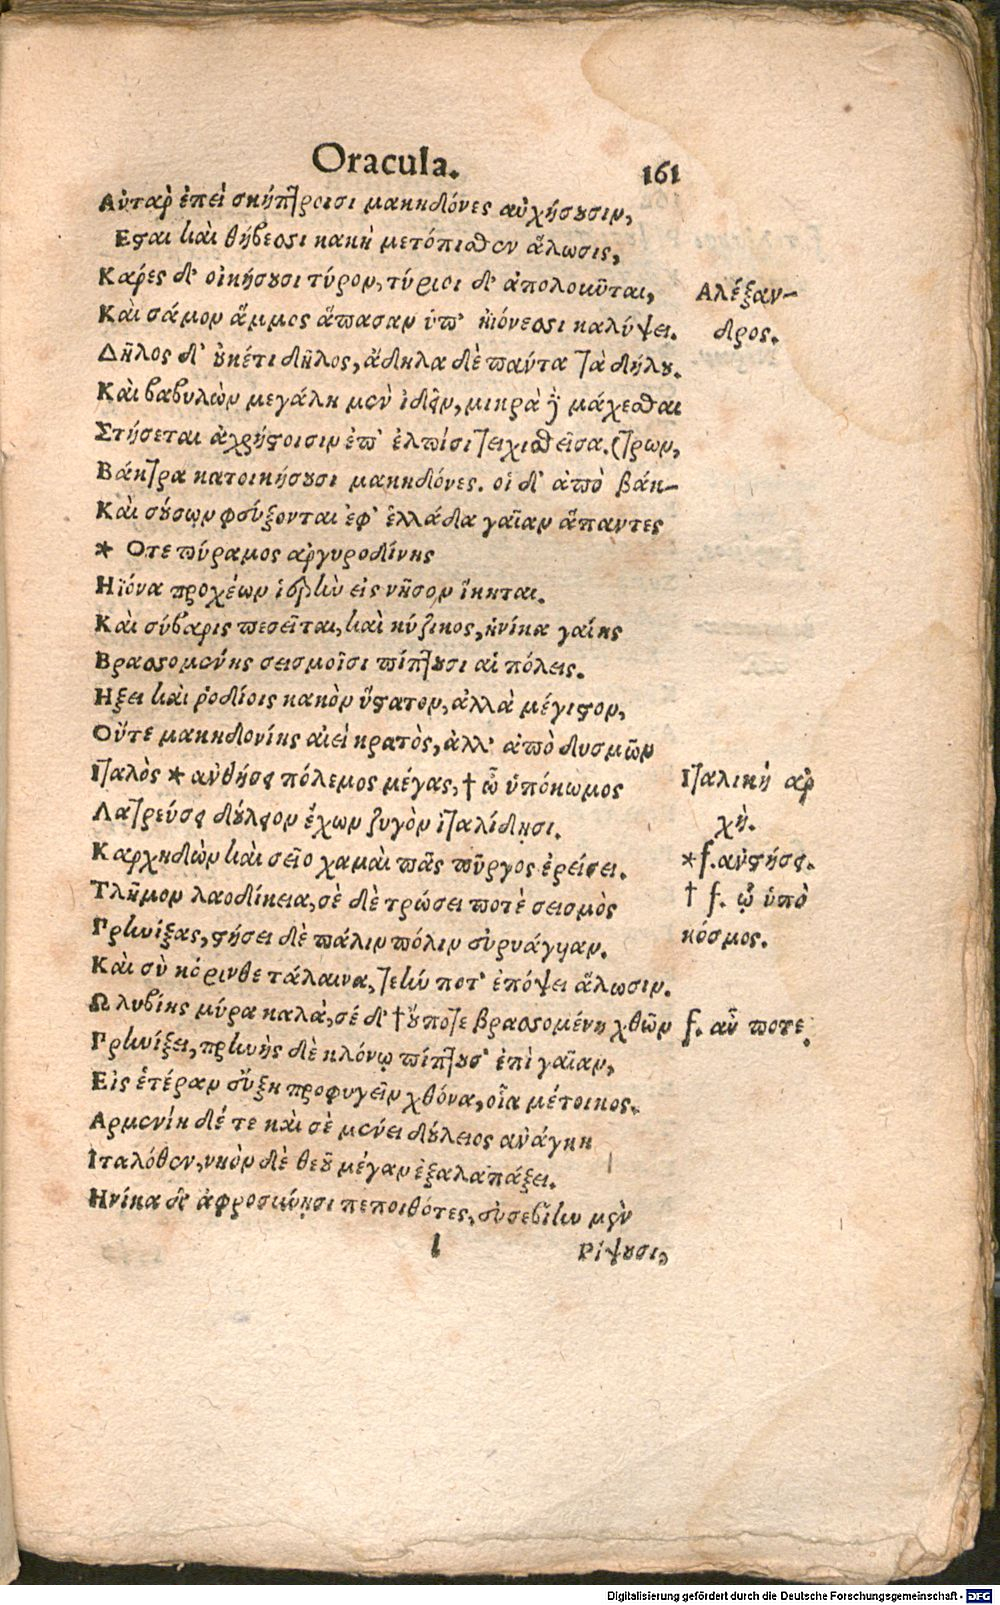 Oracula. 161
Αὐταρ ἐπεὶ σκήπτροισι μακηδόνες αὐχήσουσιν,
Εσται καὶ θήβεσσι κακὴ μετόπισθεν ἅλωσις,
Κάρες δ' οἰκήσουσι τύρον, τύριοι δ' ἀπολοῦνται, Αλέξαν-
Καὶ σάμον ἅμμος ἅπασαν ὑπ' ἠιόνεσσι καλύψει. δρος.
Δῆλος δ' οὐκέτι δῆλος, ἄδηλα δὲ πάντα τὰ δήλου.
Καὶ βαβυλὼν μεγάλη μὲν ἰδεῖν, μικρὰ δὲ μάχεσθαι
Στήσεται ἀχρήστοισιν ἐπ' ἐλπίσι τειχισθεῖσα. (τρων,
Βάκτρα κατοικήσουσι μακηδόνες. οἱ δ' ἀπὸ βάκ-
Καὶ σούσων φεύξονται ἐφ' ἑλλάδα γαῖαν ἅπαντες
* Οτε πύραμος ἀργυροδίνης
Ηϊόνα προχέων ἱερὴν εἰς νῆσον ἵκηται.
Καὶ σύβαρις πεσεῖται, καὶ κύζικος, ἡνίκα γαίης
Βρασσομένης σεισμοῖσι πίπτουσι αἱ πόλεις.
Ηξει καὶ ῥοδίοις κακὸν ὕστατον, ἀλλὰ μέγιστον,
Οὔτε μακηδονίης αἰεὶ κρατὸς, ἀλλ' ἀπὸ δυσμῶν
Ιταλὸς * ἀνθήσει πόλεμος μέγας, † ὦ ὑπόκωμος Ιταλικὴ ἀρ
Λατρεύσει δούλειον ἔχων ζυγὸν ἰταλίδῃσι. χή.
Καρχηδὼν καὶ σεῖο χαμαὶ πᾶς πῦργος ἐρείσει. * f. αὐστήσει.
Τλῆμον λαοδίκεια, σὲ δὲ τρώσει ποτὲ σεισμὸς † f. ᾧ ὑπὸ
Πρηνίξας, στήσει δὲ πάλιν πόλιν εὐρυάγυιαν. κόσμος.
Καὶ σὺ κόρινθε τάλαινα, τεήν ποτ' ἐπόψει ἅλωσιν.
Ω λυβίης μύρα καλὰ, σέ δ' † οὔποτε βρασσομένη χθὼν f. αὖ ποτε.
Πρηνίξει, πρηνὴς δὲ κλόνῳ πίπτουσ' ἐπὶ γαῖαν,
Εἰς ἑτέραν εὔξῃ προφυγεῖν χθόνα, οἷα μέτοικος.
Αρμενίη δέ τε καὶ σὲ μένει δούλειος ἀνάγκη
Ιταλόθεν, νηὸν δὲ θεοῦ μέγαν ἐξαλαπάξει.
Ηνίκα δ' ἀφροσιύνῃσι πεποιθότες, εὐσεβίην μὲν
l Ρίψουσι,
Digitalisierung gefördert durch die Deutsche Forschungsgemeinschaft - DFG